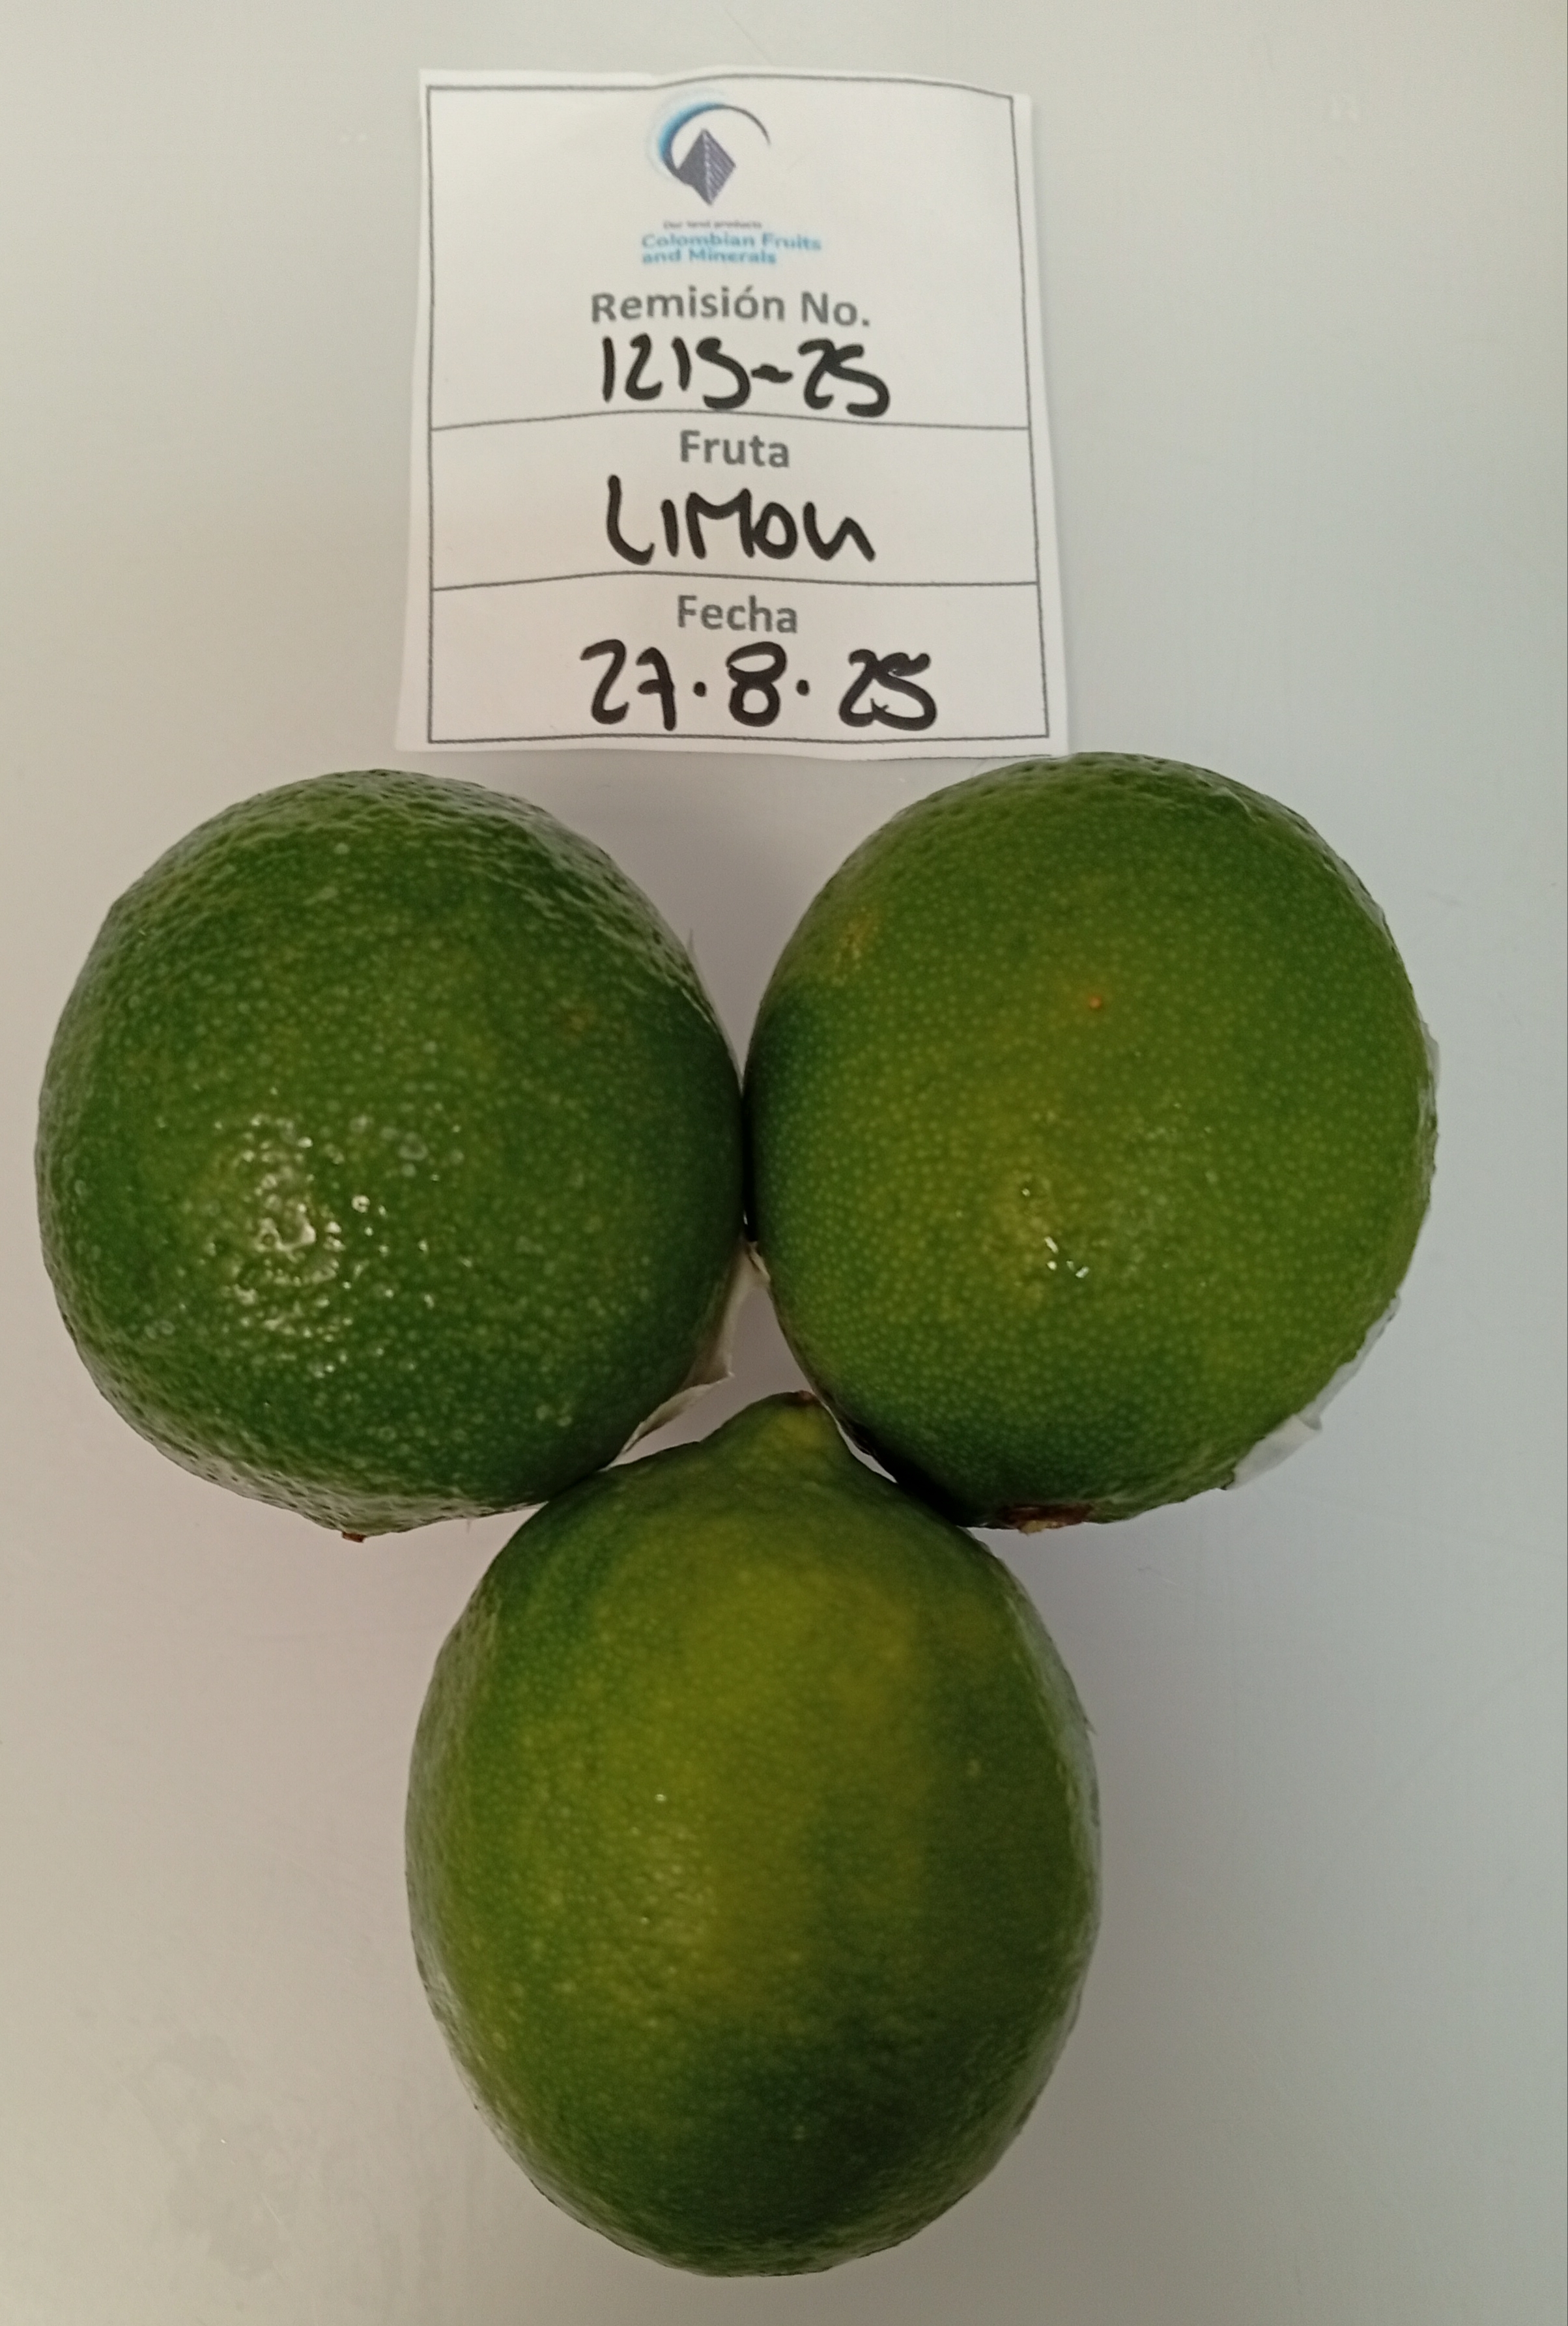 Our land products
Colombian Fruits
and Minerals
Remisión No.
1215-25
Fruta
LIMON
Fecha
27.8.25